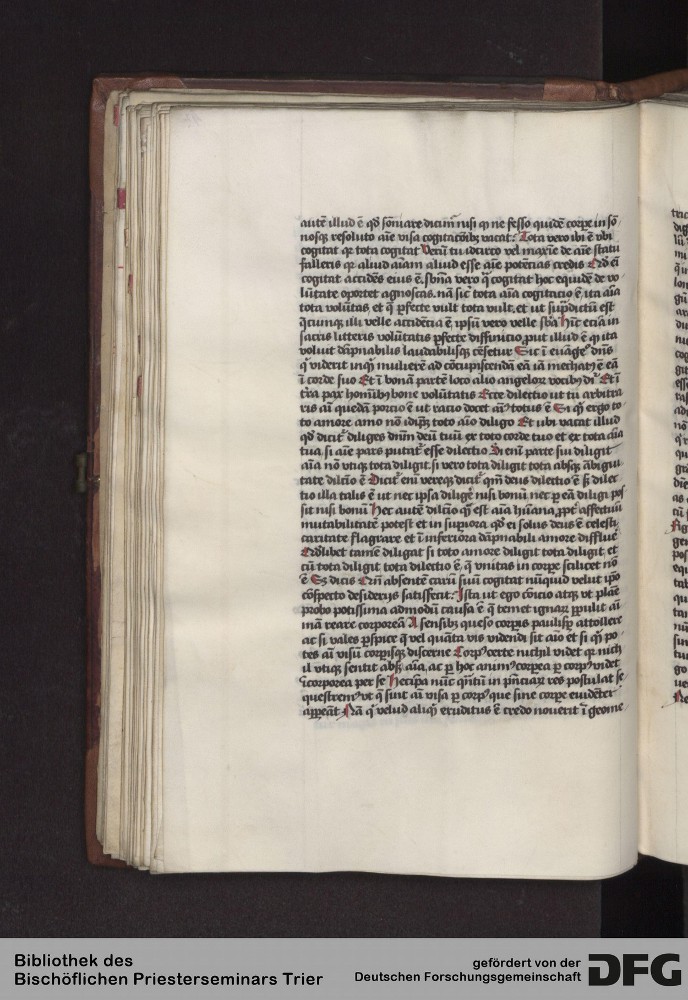 autē illud ē qd̄ sōniare dicunt̄ nisi qꝫ ne fesso quidē corpe in sō
nosqꝫ resoluto aīe visa cogitacōibꝫ vacat: Tota vero ibi ē vbi
cogitat qꝛ tota cogitat Verū tu idcirco vel maxīe de aīe statu
falleris qꝛ aliud aīam aliud esse aīe potēcias credis Nā eī
cogitat accidēs eius ē. sbn̄a vero q̄ cogitat hoc equidē de vo
lūtate oportet agnoscas. nā sic̄ tota aīa cogitacio ē ita aīa
tota volūtas et q̄ pfecte vult tota vult. et ut sup̄dictū est
q̄cūnqꝫ illi velle accidētia ē. ip̄sū vero velle sb̄a hīc ecia in
sacris litteris volūtatis pfecte diffinicio put illud ē qꝫ ita
voluit dāpnabilis laudabilisqꝫ cēsetur Sic ī euāge dn̄s
q̄ viderit inq̄ mulierē ad cōcupiscendā eā iā mechatꝰ ē eā
ī corde suo Et ī bonā partē loco alio angeloꝝ vocibꝫ dr̄ Et ī
tr̄a pax hoīnibꝫ bone volūtatis Ecce dilectio ut tu arbitra
ris aī quedā porcio ē ut racio docet aīꝰ totus ē Si q̄ ergo to
to amore amo nō idip̄ꝫ toto aīo diligo Et ubi vacat illud
qd̄ dicit̄ diliges dn̄m deū tuū ex toto corde tuo et ex tota aīa
tua. si aīe pars putat̄ esse dilectio Si enī parte sui diligit
aīa nō vtiqꝫ tota diligit. si vero tota diligit tota absqꝫ ābigui
tate dilcīo ē Dicit̄ enī vereqꝫ dicit̄ qm̄ deus dilectio ē sꝫ dilec
tio illa talis ē ut nec ipsa diligē nisi bonū nec p eā diligi pos
sit nisi bonū Hec autē dilcīo q̄ est aīa hūana, ppt̄ affectuū
mutabilitatē potest et in supiora qd̄ ei solus deus ē celesti
caritate flagrare et ī inferiora dāpnabili amore diffluē
Quodlibet tamē diligat si toto amore diligit tota diligit, et
cū tota diligit tota dilectio ē. q̄ vnitas in corpe scilicet nō
ē Sꝫ dicis Cum absentē carū suū cogitat nūquid velut ip̄o
cōspecto desiderijs satisfecit: Ista ut ego cōicio atqꝫ ut plane
probo potissima admodū causa ē q̄ temet ignarꝫ ppulit aī
mā reare corporeā A sensibꝫ queso corpis paulisp attollere
ac si vales pspice q̄ vel quāta vis videndi sit aīo et si q̄ po
tes aī visū corpisqꝫ discerne Corpꝰ certe nichil videt qꝛ nich
il vtiqꝫ sentit absqꝫ aīa, ac p hoc animꝰ corpea p corpꝰ videt
īcorporea per se Hec ip̄a nūc qn̄tū in pn̄ciaꝝ res postulat se
questremꝰ vt q̄ sunt aī visa p corpꝰ que sine corpe euidēter
appeāt Nā q̄ velud aliq̄ eruditus ē credo nouerit ī geome
Bibliothek des
Bischöflichen Priesterseminars Trier
gefördert von der
Deutschen Forschungsgemeinschaft
DFG